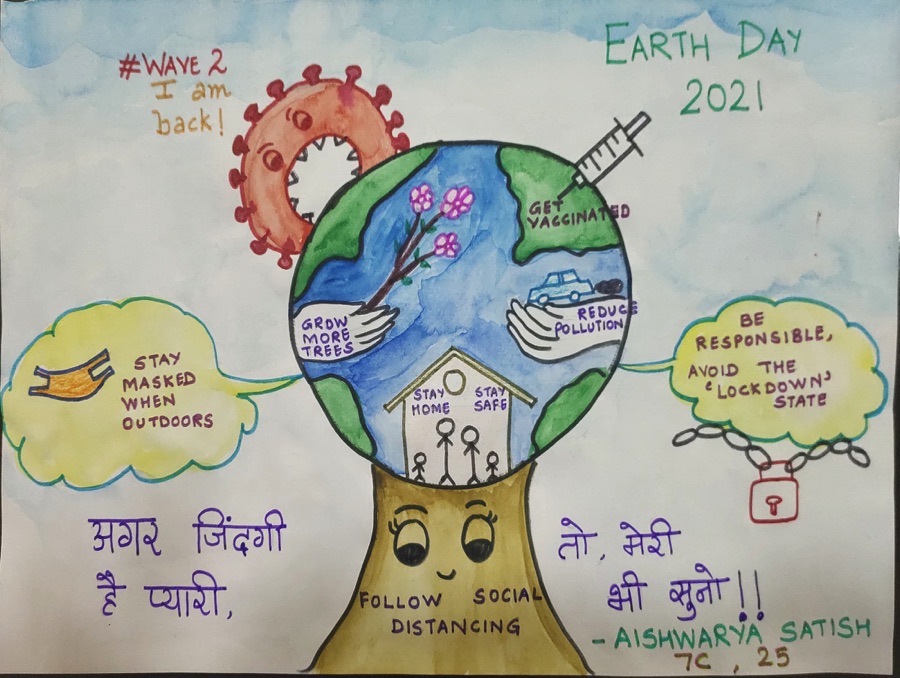 EARTH DAY
2021
#WAVE 2
I am
back!
GET
VACCINATED
GROW
MORE
TREES
REDUCE
POLLUTION
STAY
HOME
STAY
SAFE
STAY
MASKED
WHEN
OUTDOORS
BE
RESPONSIBLE,
AVOID THE
'LOCKDOWN'
STATE
FOLLOW SOCIAL
DISTANCING
अगर जिंदगी
है प्यारी,
तो, मेरी
भी सुनो!!
- AISHWARYA SATISH
7C, 25